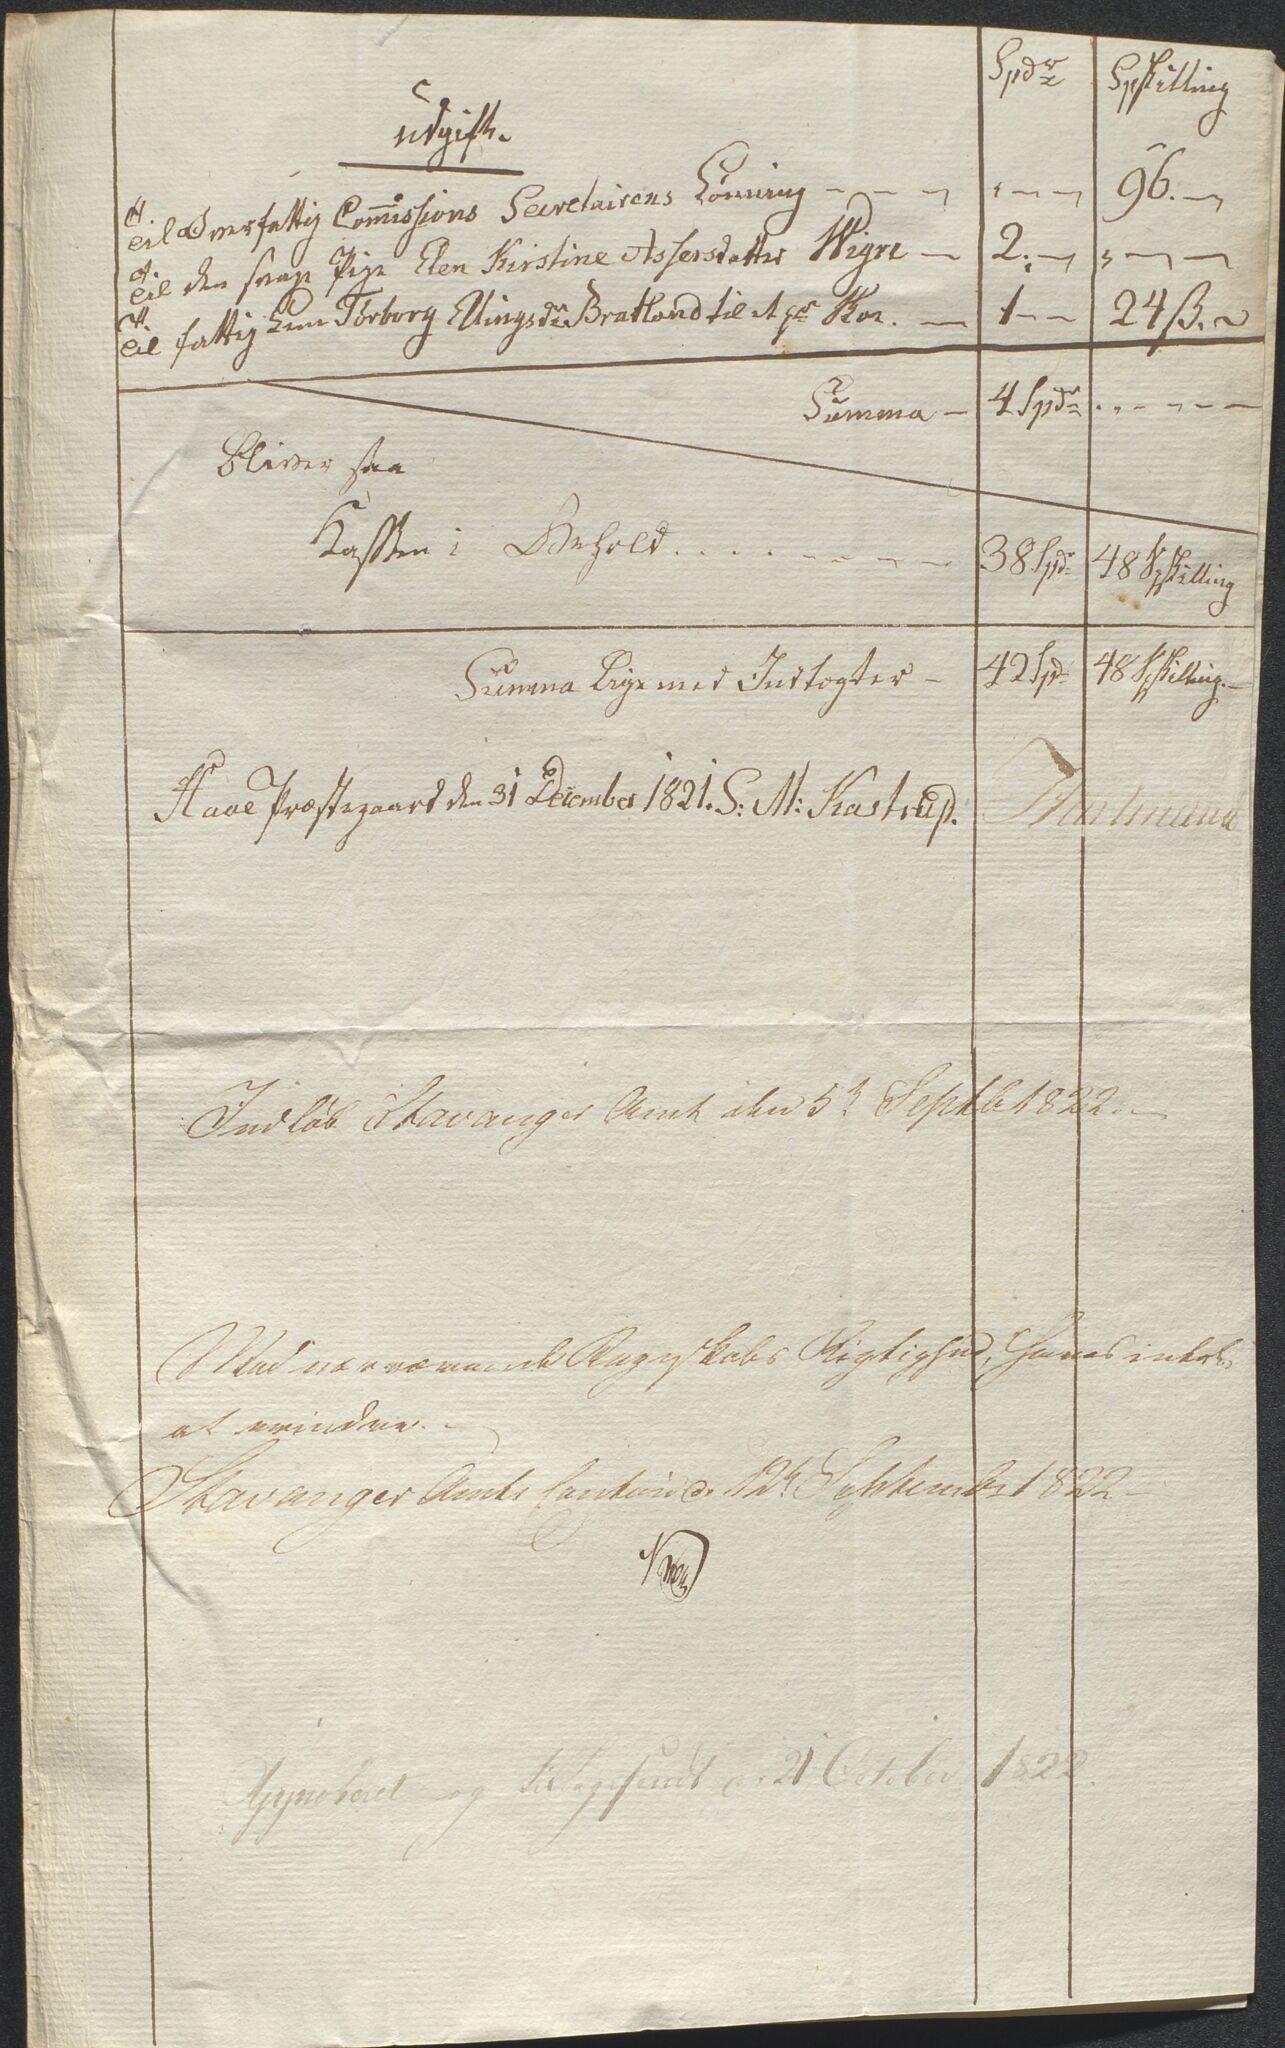 Spdr Spskilling
Udgift.
Til Overfattig Commissions Secretairens Lönning 96.
Til den svage Pige Elen Kirstine Assersdatter Wigre 2.
Til fattig Lem Torborg Ellingsdr. Bratland til et pr Koe. 1 24 ß.
Summa 4 Spdr
Bliver saa
Kassen i Behold 38 Spdr 48 Spskilling
Summa Lige med Indtægter 42 Spd 48 Spskilling.
Haae Præstegaard den 31 December 1821. S: M: Kastrup. Hartmann
Indlöb Stavanger Amt den 5t Septbr 1822
Mod nærværende Regnskabs Rigtighed, haves intet
at erindre.
Stavanger Amts Contoir d. 12t September 1822
Approberet og d. 21 October 1822.